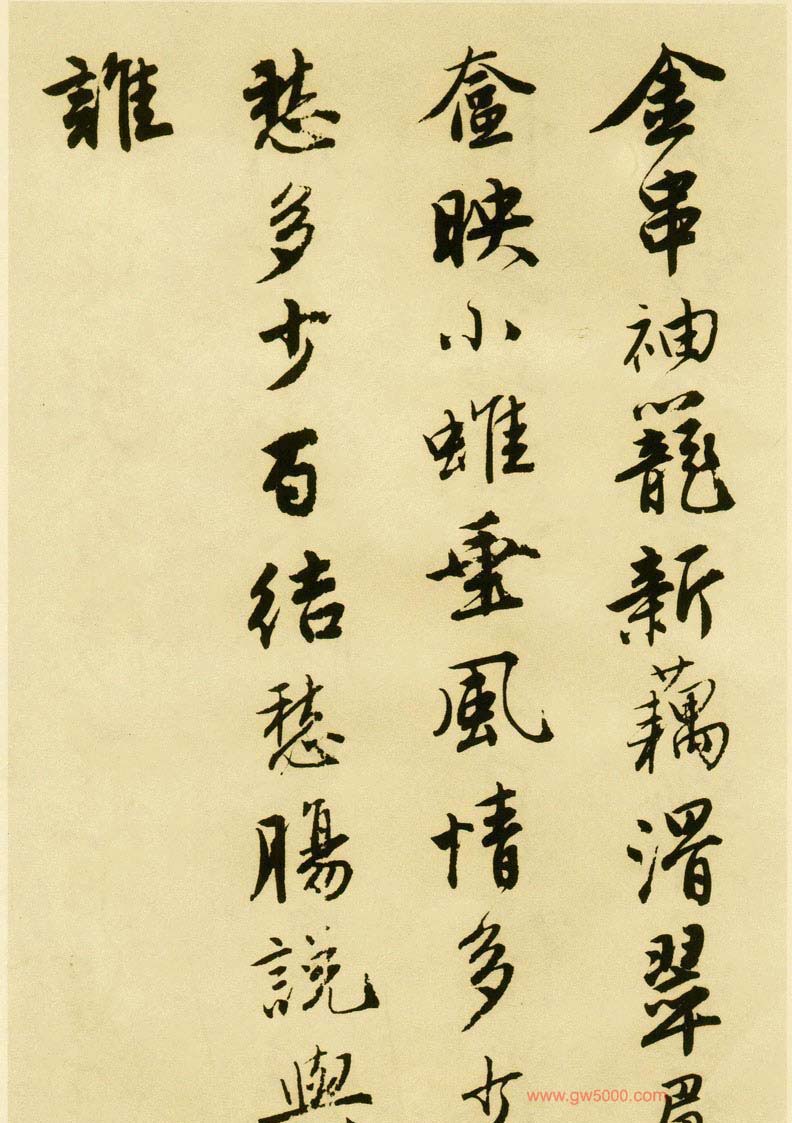 金串袖籠新藕滑翠眉
奩映小蜼垂風情多少
愁多少百結愁腸說與
誰
www.gw5000.com